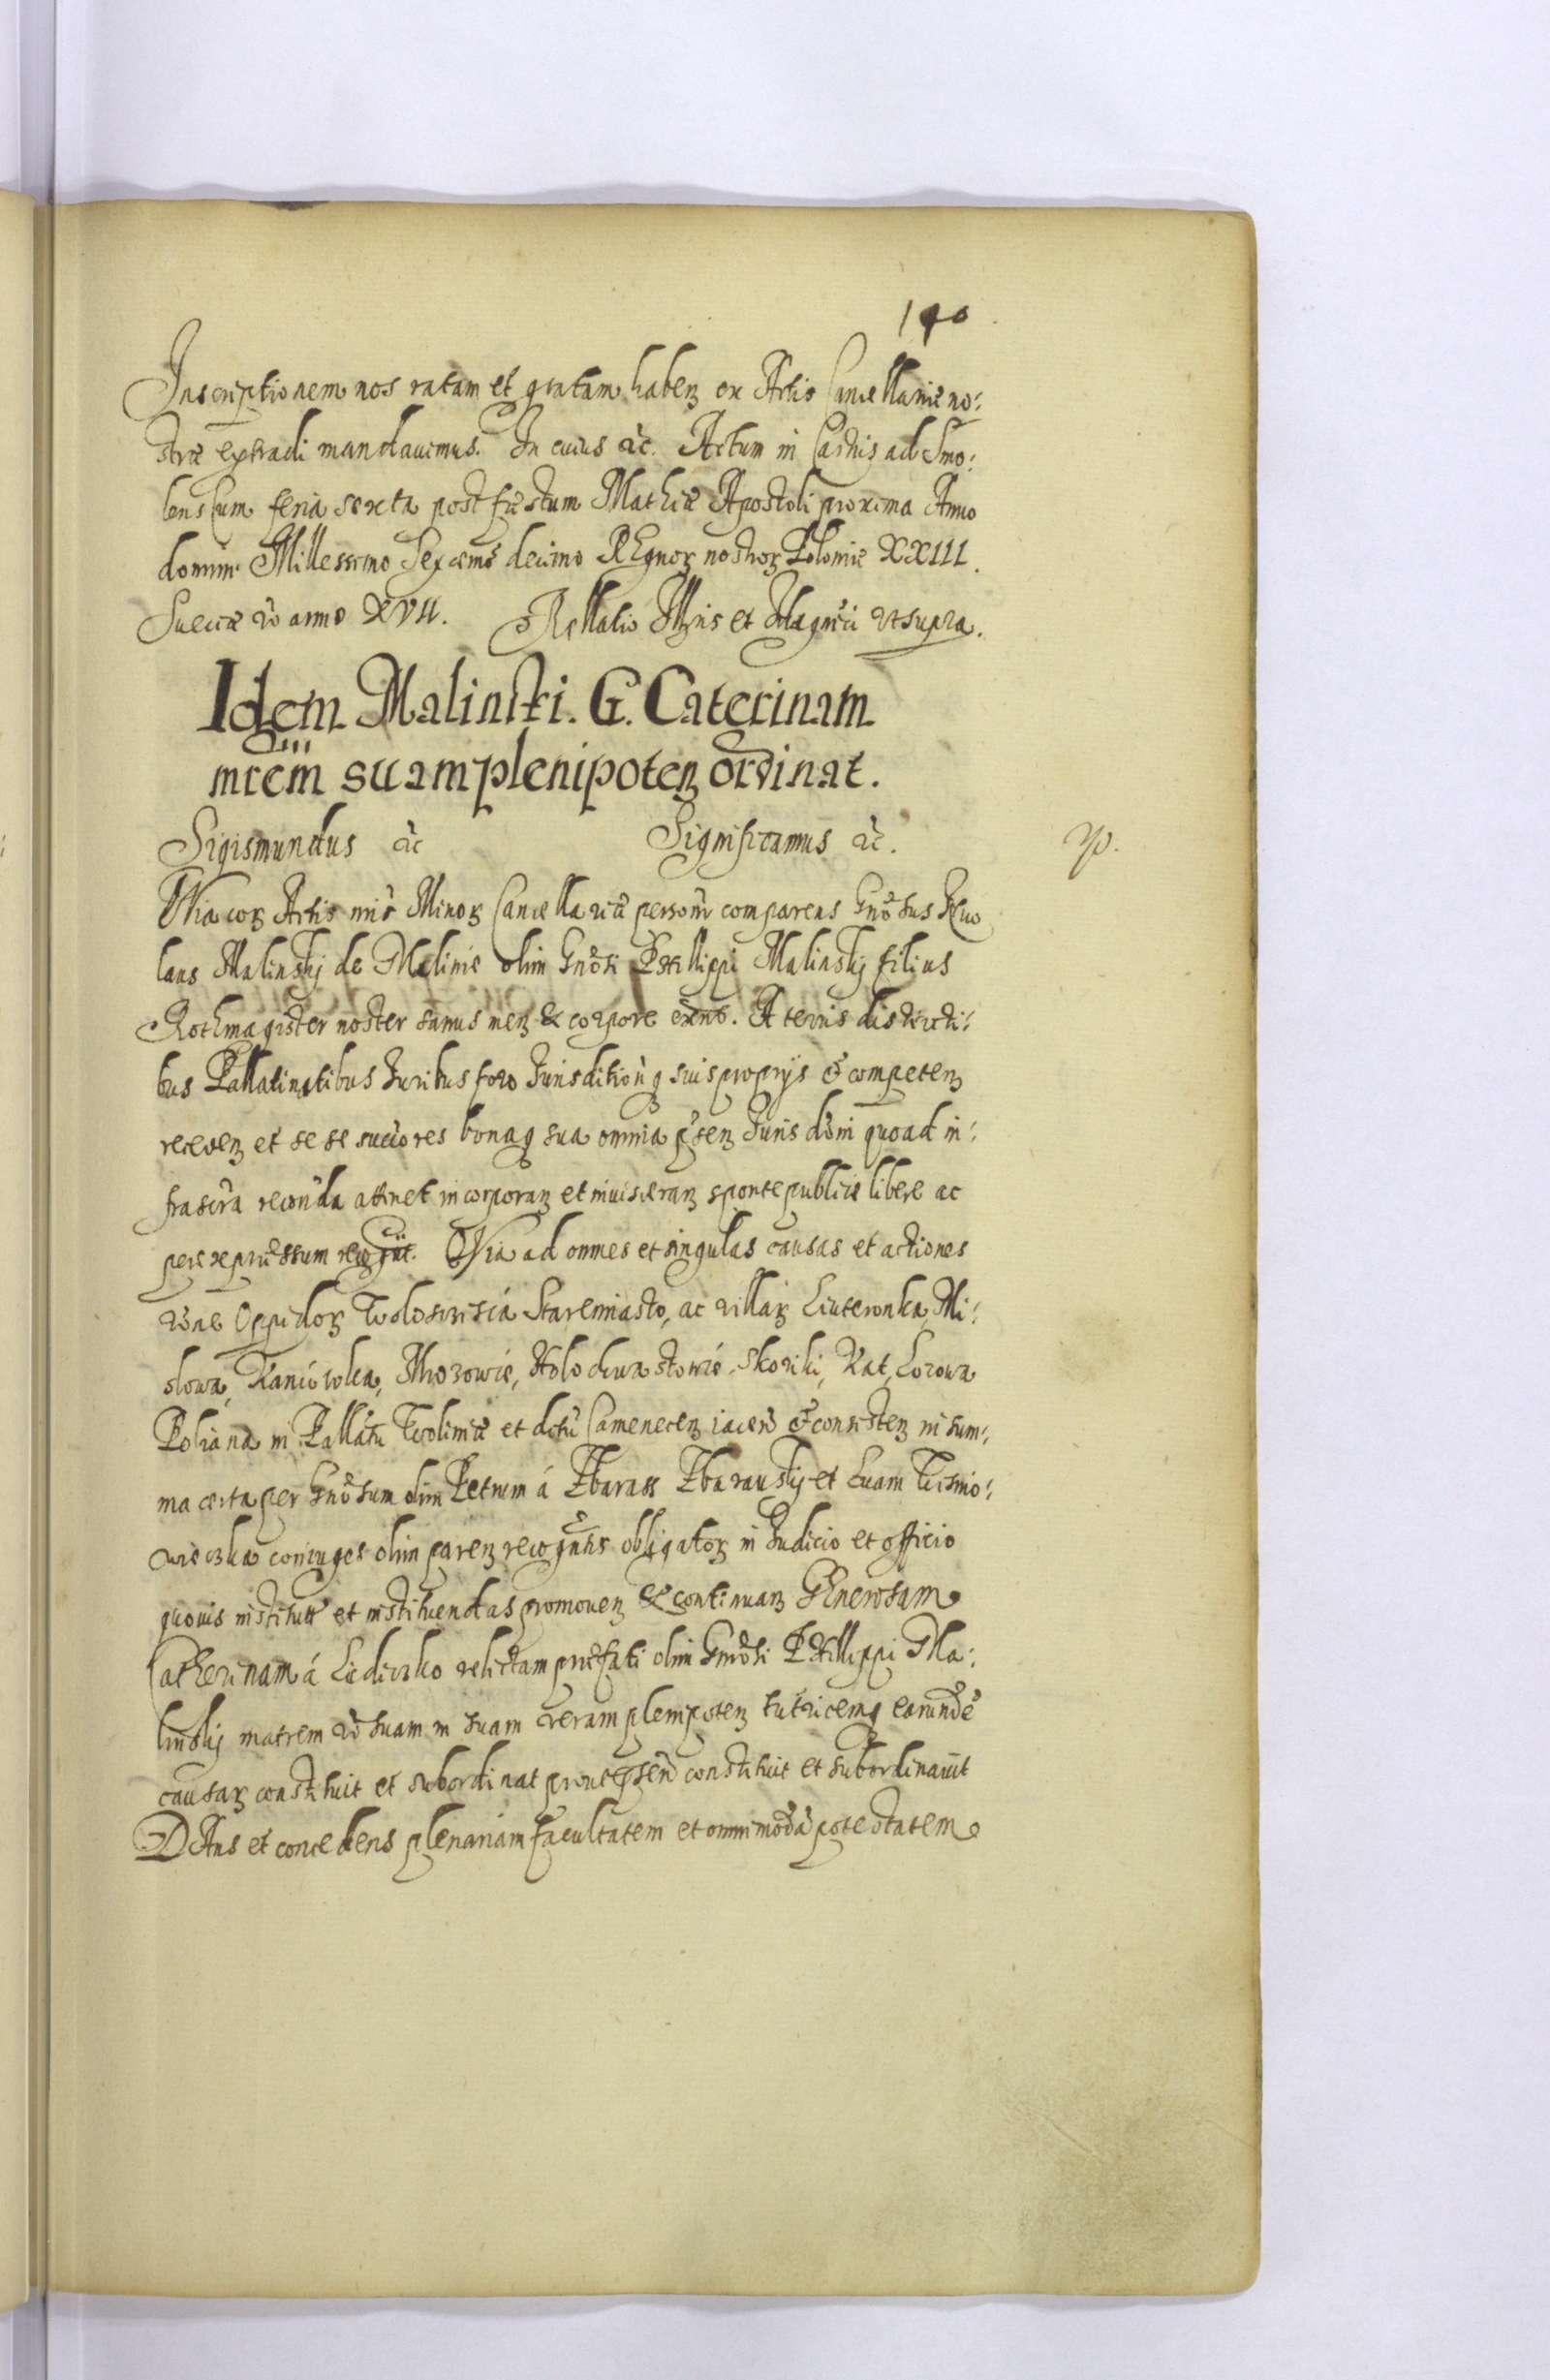 140
Inscriptionem nos ratam et gratam habenʒ ex Actis Cancellariæ no:
stræ extradi mandavimus. In cuius &c. Actum in Castris ad Smo:
lenscum feria sexta post fæstum Mathiæ Apostoli proxima Anno
domini Millessimo Sexcentᵒ decimo REgnorʒ nostrorʒ Poloniæ XXIII.
Sueciæ vō anno XVII. Rellatio Illꝛis et Magnīci vt supra.
Idem Malinski. G. Caterinam
mrēm suam plenipotenʒ ordinat.
Sigismundus &c Significamus &c.
p.
QVia corʒ Actis nr̄is Minorʒ Cancellariæ personlr comparens Gnōsus
laus Malinskij de Malinie olim Gnōsi PHillippi Malinskij filius
Rothmagister noster sanus menʒ & corpore exnꝭ. A terris districti:
bus Pallatinatibus Iuribus foro Iurisditionq̄ suis proprijs & competenʒ
recedenʒ et se se succōres bonaq sua omnia pn̄senʒ Iurisdōni quoad in:
frascrā reconda attinet incorporanʒ et inuisceranʒ sponte publicæ libere ac
per expressum recognit. QVia ad omnes et singulas causas et actiones
rōne Oppidorʒ Woloscziscia Staremiasto, ac villarʒ Liutewnka, Mi:
slowa, Kaniowka, Morowie, Holochwastowie, Skoriki, Kat, Lozowa
Poliana in Pallātu Woliniæ et dctū Camenecenʒ iacen̄ & consistenʒ in sum:
ma certa per Gnōsum olim Petrum á Zbarass Zbarauskij et Euam Wismo:
wieczka coniuges olim parenʒ recogn̄tis obligatorʒ in Iudicio et officio
quouis institutas et instituendas promouenʒ & continuanʒ GEnerosam
Catherinam á Liediczko relictam præfati olim Gnrōsi PHillippi Ma:
linskij matrem vō suam in suam veram plenipotenʒ tutricemq earundē
causarʒ constituit et subordinat prout pn̄sen̄ constituit et subordinauit
DAns et concedens plenariam facultatem et omnimodā potestatem